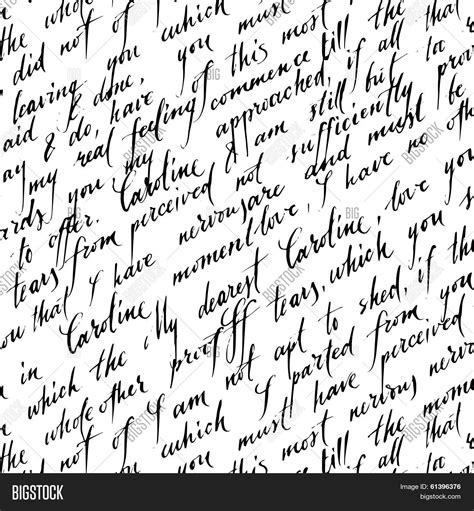 the whole of you which must the
did not of you must the mom
leaving you this most
aid & done, you commence till all
ay & do, have feeling of approached, if too
my real still but prov
ards you my & am sufficiently be
to offer. Caroline not and must the
tears from perceived I have no oth
ou that I have nervous are love,
Caroline moment Caroline, love you
in which the My dearest tears, which you s
the whole other proff shed, if the
did not of I am not apt to from you
you which I parted perceived
you must have nervous
this most the mom
till all that
BIGSTOCK
Image ID: 61396376
bigstock.com